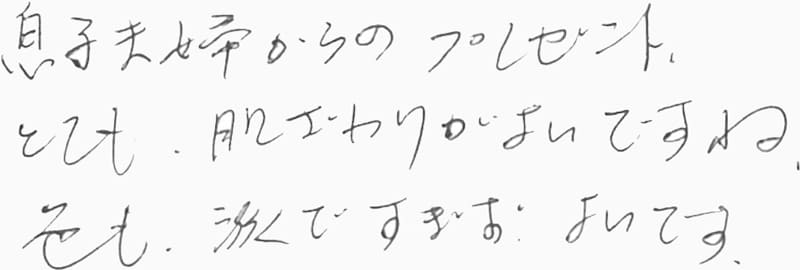 息子夫婦からのプレゼント、
とても、肌ざわりがよいですね、
色も、淡くですぎず、よいです、